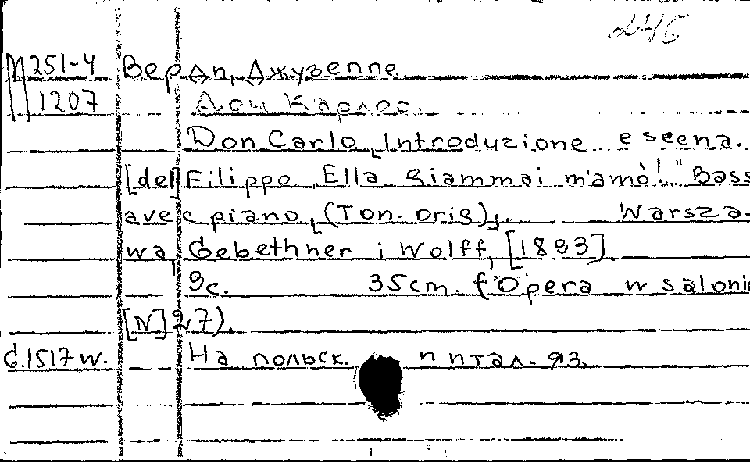 246
М 251-4 Верди, Джузеппе
1207 Дон Карлос.
Don Carlo, Introduzione e scena.
[del] Filippo „Ella giammai m'amò!" Bass
avec piano, (Ton. orig). Warsza-
wa, Gebethner i Wolff, [1883]
9c. 35cm. (Opera w saloni
[N] 27).
G.1517w. На польск. и итал. яз.